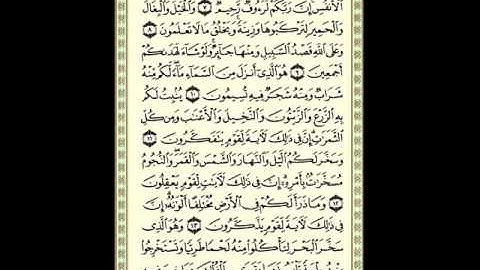 ٱلۡأَنفُسِ إِنَّ رَبَّكُمۡ لَرَءُوفٞ رَّحِيمٞ ٧ وَٱلۡخَيۡلَ وَٱلۡبِغَالَ
وَٱلۡحَمِيرَ لِتَرۡكَبُوهَا وَزِينَةٗۚ وَيَخۡلُقُ مَا لَا تَعۡلَمُونَ ٨
وَعَلَى ٱللَّهِ قَصۡدُ ٱلسَّبِيلِ وَمِنۡهَا جَآئِرٞۚ وَلَوۡ شَآءَ لَهَدَىٰكُمۡ
أَجۡمَعِينَ ٩ هُوَ ٱلَّذِيٓ أَنزَلَ مِنَ ٱلسَّمَآءِ مَآءٗۖ لَّكُم مِّنۡهُ
شَرَابٞ وَمِنۡهُ شَجَرٞ فِيهِ تُسِيمُونَ ١٠ يُنۢبِتُ لَكُم
بِهِ ٱلزَّرۡعَ وَٱلزَّيۡتُونَ وَٱلنَّخِيلَ وَٱلۡأَعۡنَٰبَ وَمِن كُلِّ
ٱلثَّمَرَٰتِۚ إِنَّ فِي ذَٰلِكَ لَأٓيَةٗ لِّقَوۡمٖ يَتَفَكَّرُونَ ١١
وَسَخَّرَ لَكُمُ ٱلَّيۡلَ وَٱلنَّهَارَ وَٱلشَّمۡسَ وَٱلۡقَمَرَۖ وَٱلنُّجُومُ
مُسَخَّرَٰتُۢ بِأَمۡرِهِۦٓۚ إِنَّ فِي ذَٰلِكَ لَأٓيَٰتٖ لِّقَوۡمٖ يَعۡقِلُونَ
١٢ وَمَا ذَرَأَ لَكُمۡ فِي ٱلۡأَرۡضِ مُخۡتَلِفًا أَلۡوَٰنُهُۥٓۚ إِنَّ
فِي ذَٰلِكَ لَأٓيَةٗ لِّقَوۡمٖ يَذَّكَّرُونَ ١٣ وَهُوَ ٱلَّذِي
سَخَّرَ ٱلۡبَحۡرَ لِتَأۡكُلُواْ مِنۡهُ لَحۡمٗا طَرِيّٗا وَتَسۡتَخۡرِجُواْ